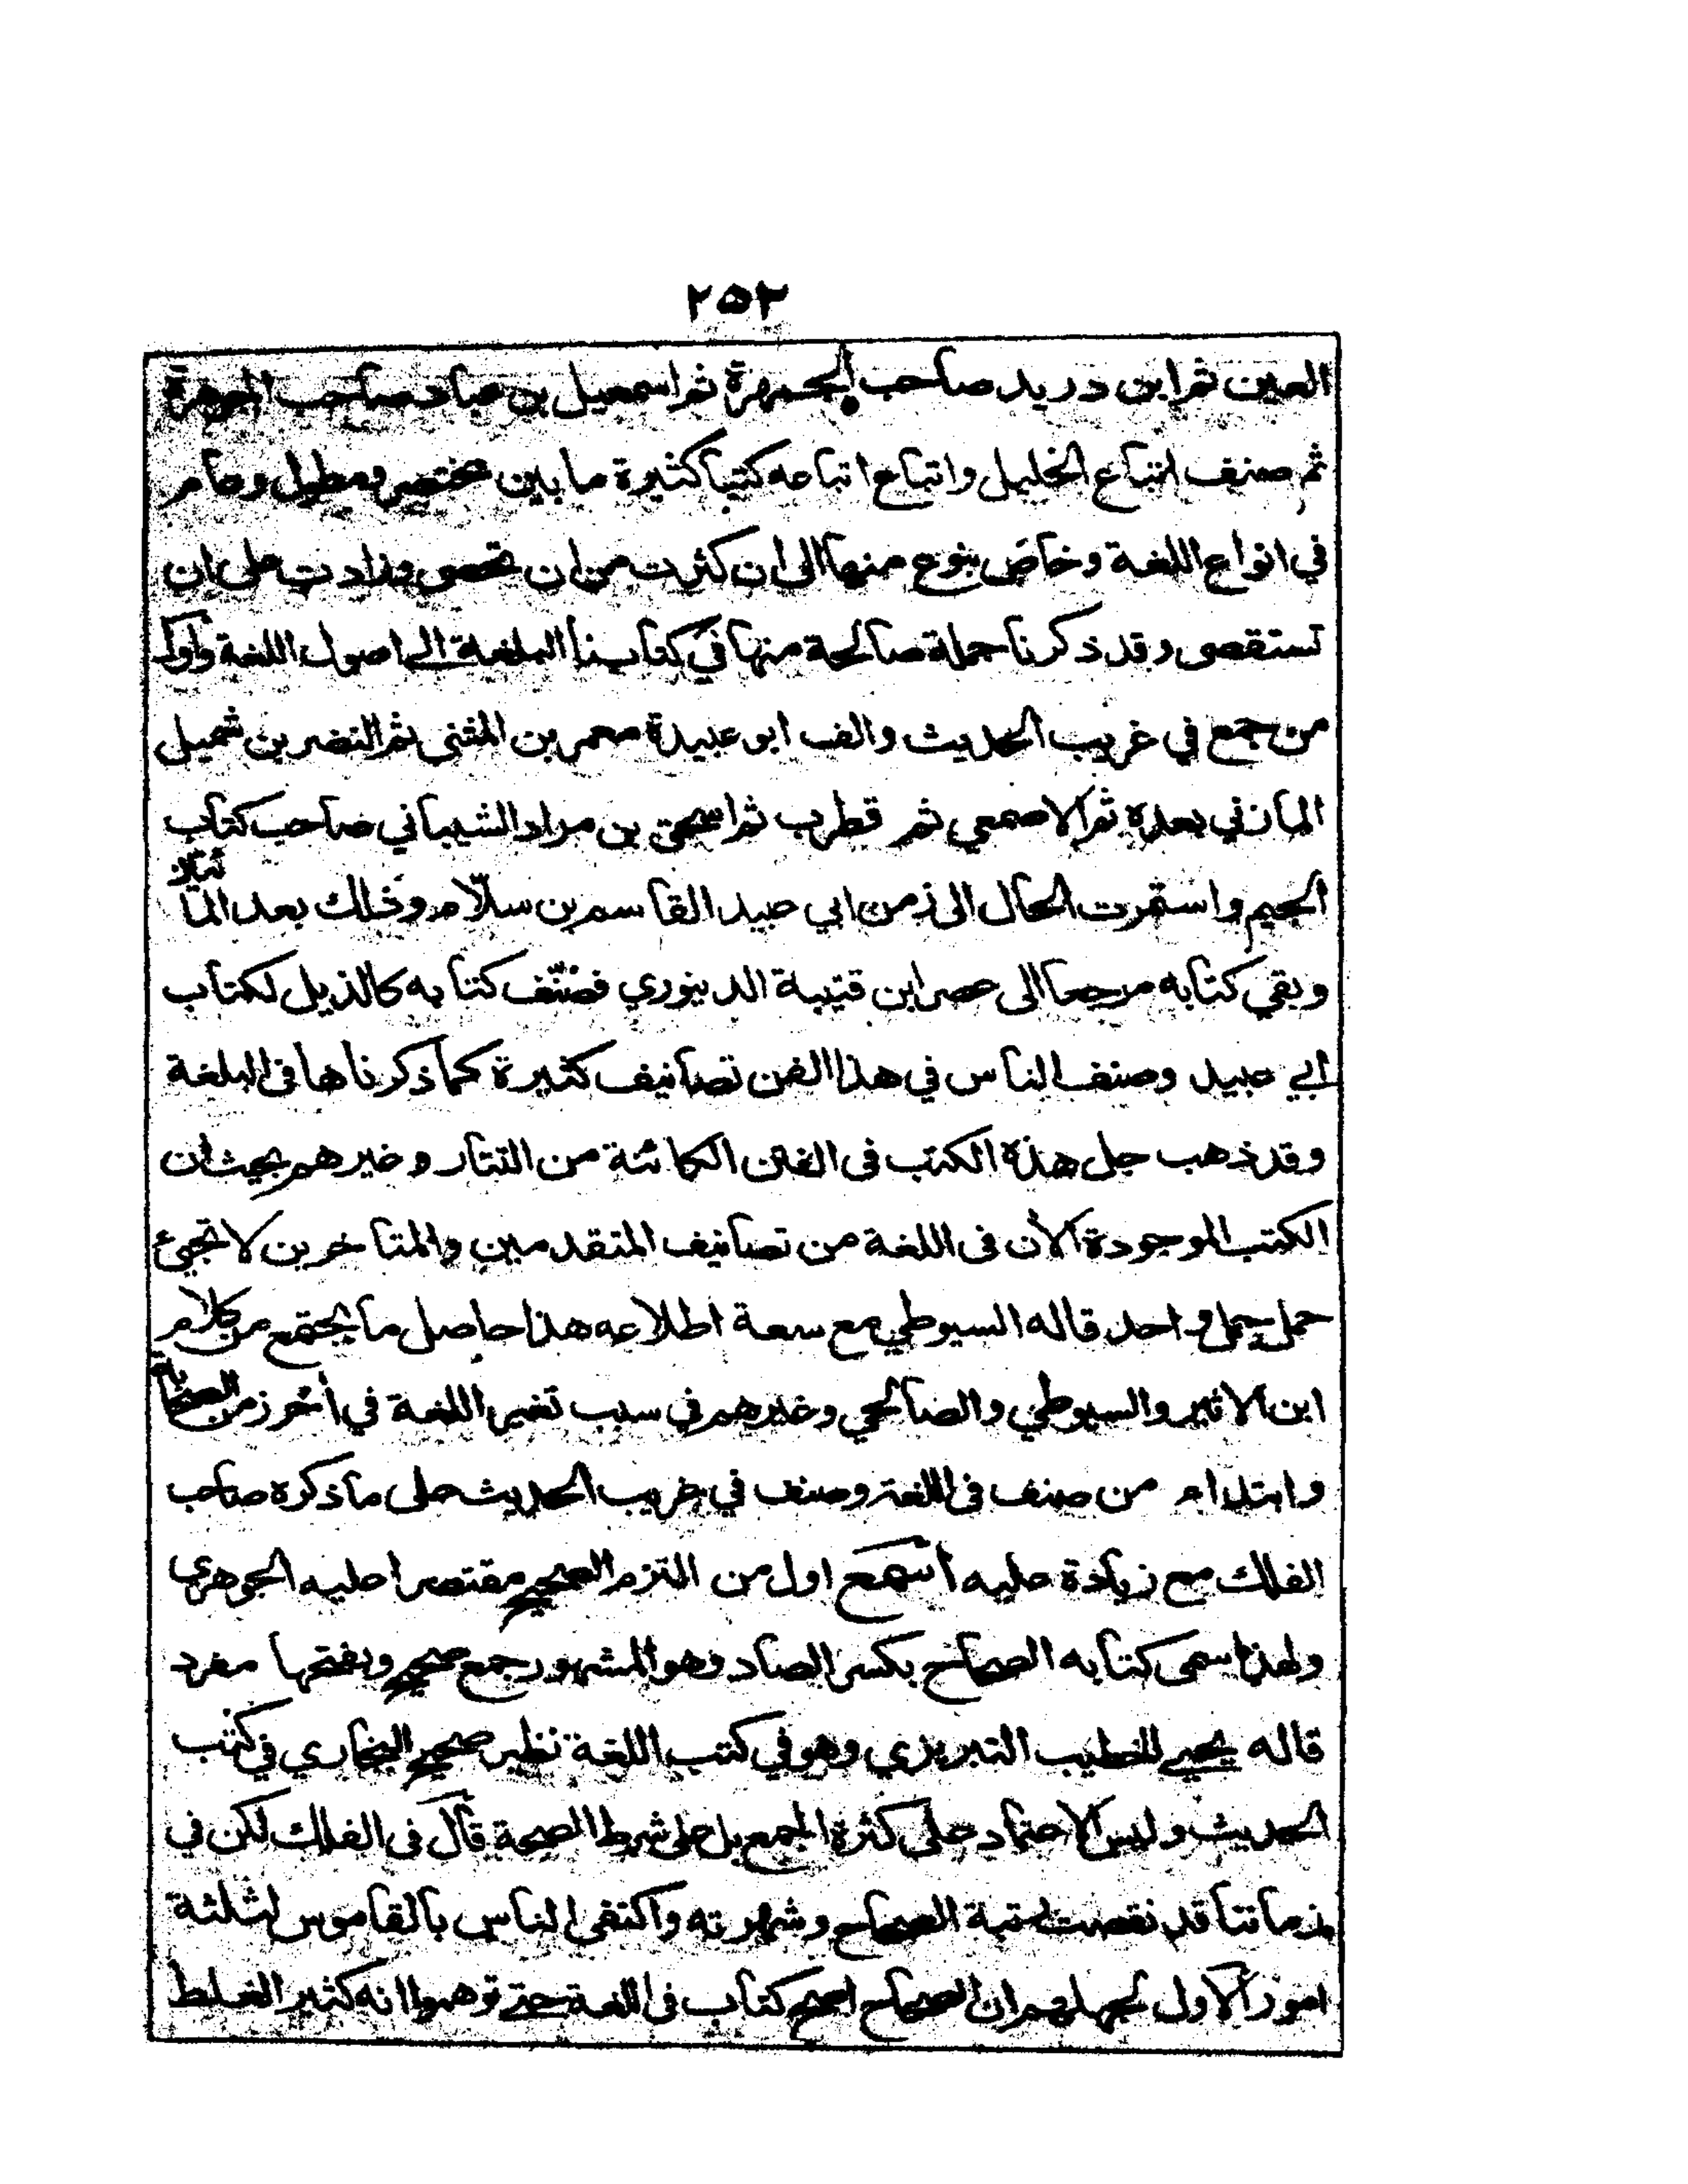 ٢٥٢
العين ثم ابن دريد صاحب الجمهرة ثم اسمعيل بن عباد صاحب الجوهرة
ثم صنف اتباع الخليل واتباع اتباعه كتبا كثيرة ما بين مختصر ومطول وعام
في انواع اللغة وخاص بنوع منها الى ان كثرت من ان تحصى وزادت على ان
تستقصى وقد ذكرنا جملة صالحة منها في كتابنا البلغة الى اصول اللغة واول
من جمع في غريب الحديث والف ابو عبيدة معمر بن المثنى ثم النضر بن شميل
المازني بعده ثم الاصمعي ثم قطرب ثم اسحق بن مراد الشيباني صاحب كتاب
الجيم واستمرت الحال الى زمن ابي عبيد القاسم بن سلّام وذلك بعد المائتين
وبقي كتابه مرجعا الى عصر ابن قتيبة الدينوري فصنّف كتابه كالذيل لكتاب
ابي عبيد وصنف الناس في هذا الفن تصانيف كثيرة كما ذكرناها في البلغة
وقد ذهب جل هذه الكتب في الفتن الكائنة من التتار وغيرهم بحيث ان
الكتب الموجودة الأن في اللغة من تصانيف المتقدمين والمتاخرين لا تجيئ
حمل جمل واحد قاله السيوطي مع سعة اطلاعه هذا حاصل ما يجتمع من كلام
ابن الاثير والسيوطي والصالحي وغيرهم في سبب تغير اللغة في أخر زمن الصحابة
وابتداء من صنف في اللغة وصنف في غريب الحديث على ما ذكره صاحب
الفلك مع زيادة عليه انتهى اول من التزم الصحيح مقتصرا عليه الجوهري
ولهذا سمى كتابه الصحاح بكسر الصاد وهو المشهور جمع صحيح وبفتحها مفرد
قاله يحيى الخطيب التبريزي وهو في كتب اللغة نظير صحيح البخاري في كتب
الحديث وليس الاعتماد على كثرة الجمع بل على شرط الصحة قال في الفلك لكن في
زماننا قد نقصت رتبة الصحاح وشهرته واكتفى الناس بالقاموس لثلثة
امور الاول لجهلهم ان الصحاح اصح كتاب في اللغة حتى توهموا انه كثير الغلط